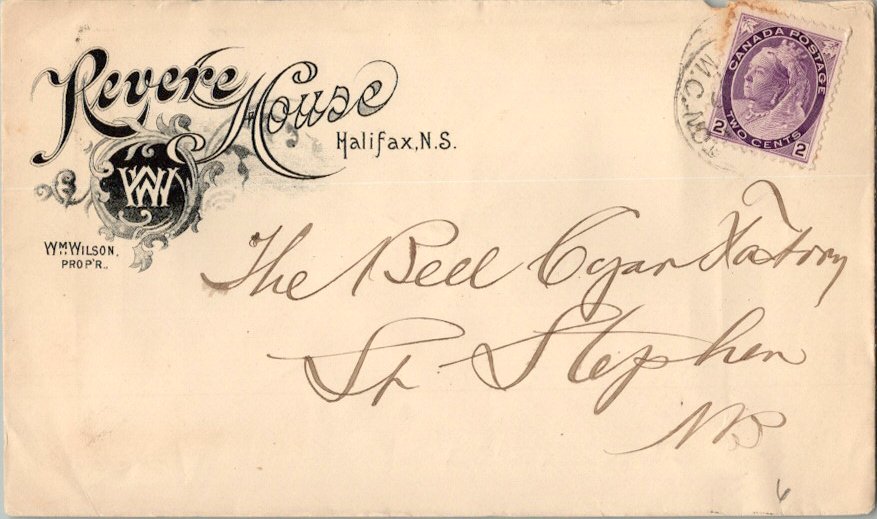 Revere House
Halifax, N.S.
WW
WM WILSON,
PROP'R.
CANADA POSTAGE
2 TWO CENTS 2
M.C.
The Bell Cigar Factory
St. Stephen
NB